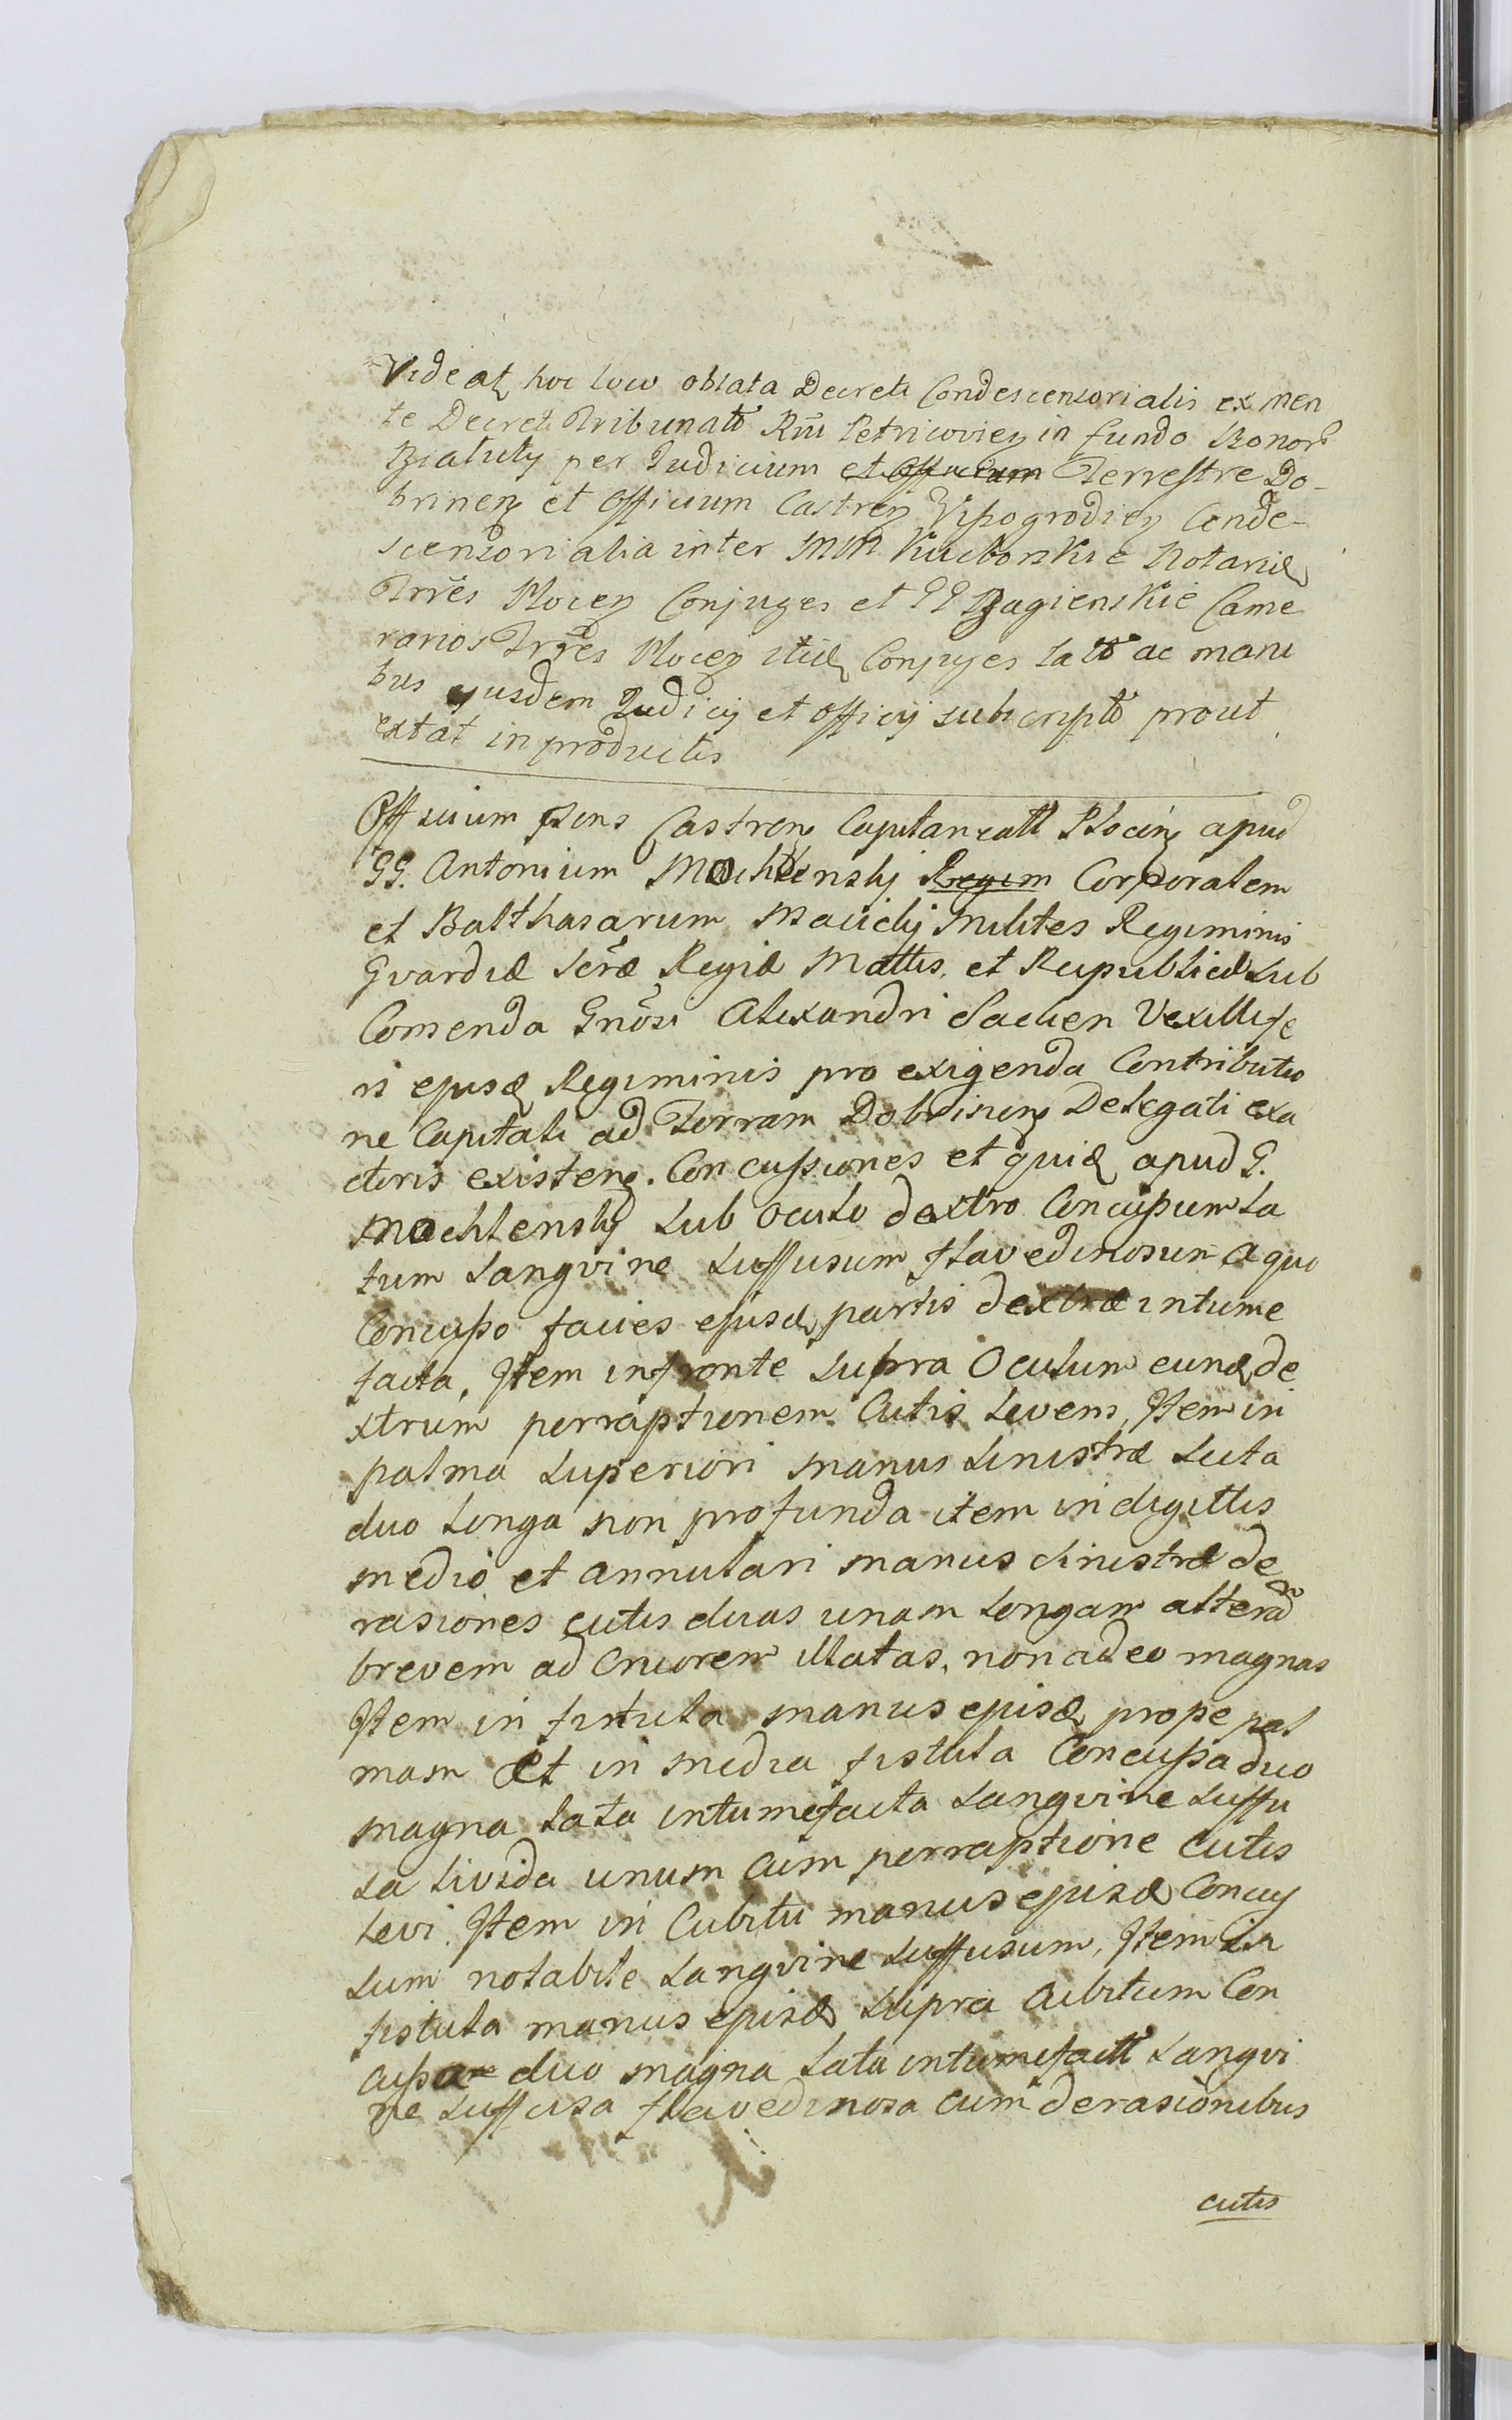 Videat hoc loco oblata Decreti Condescensorialis ex men
te Decreti Tribunalt Rni Petricovien in fundo Bonor
Białuty per Judicium et Officium Terrestre Do-
brinen et Officium Castren Vispogrodien Conde-
scensorialia inter MM Kuczborskie Notarios
Trres Plocen Conjuges et GG Bagienskie Came
rarios Trres Plocen itid Conjuges lato ac mani
bus ejusdem Judicij et Officij subscripto prout
extat in productis
Officium Psens Castren Capitaneall Plocen apud
GG. Antonium Mochtenskj Regim Corporalem
et Balthasarum Macickj Milites Regiminis
Gvardiæ Seræ Regiæ Mattis. et Reipublicæ sub
Comenda Gnosi Alexandri Sacken Vexillife
ri ejusd Regiminis pro exigenda Contributio
ne Capitali ad Terram Dobrinen Delegati exa
ctoris existen. Concussiones et quid apud G.
Mochtenskj sub oculo dextro Concussum la
tum sangvine suffusum flavedinosum a quo
Concusso facies ejusd partis dextræ intume
facta, Item in fronte supra Oculum eund de
xtrum perraptionem Cutis levem, Item in
palma superiori manus sinistræ secta
duo longa non profunda item in digittis
medio et annulari manus sinistræ de
rasiones cutis duas unam longam alteram
brevem ad Cruorem illatas, non adeo magnas
Item in fistula manus ejusd prope pal
mam Et in media fistula Concussa duo
magna lata intumefacta sangvine suffu
sa livida unum cum perraptione cutis
levi. Item in Cubitu manus ejusd Concus
sum notabile sangvine suffusum, Item in
fistula manus ejusd supra Cubitum Con
cussa duo magna lata intumefactt sangvi
ne suffusa flavedinosa cum derasionibus
cutis